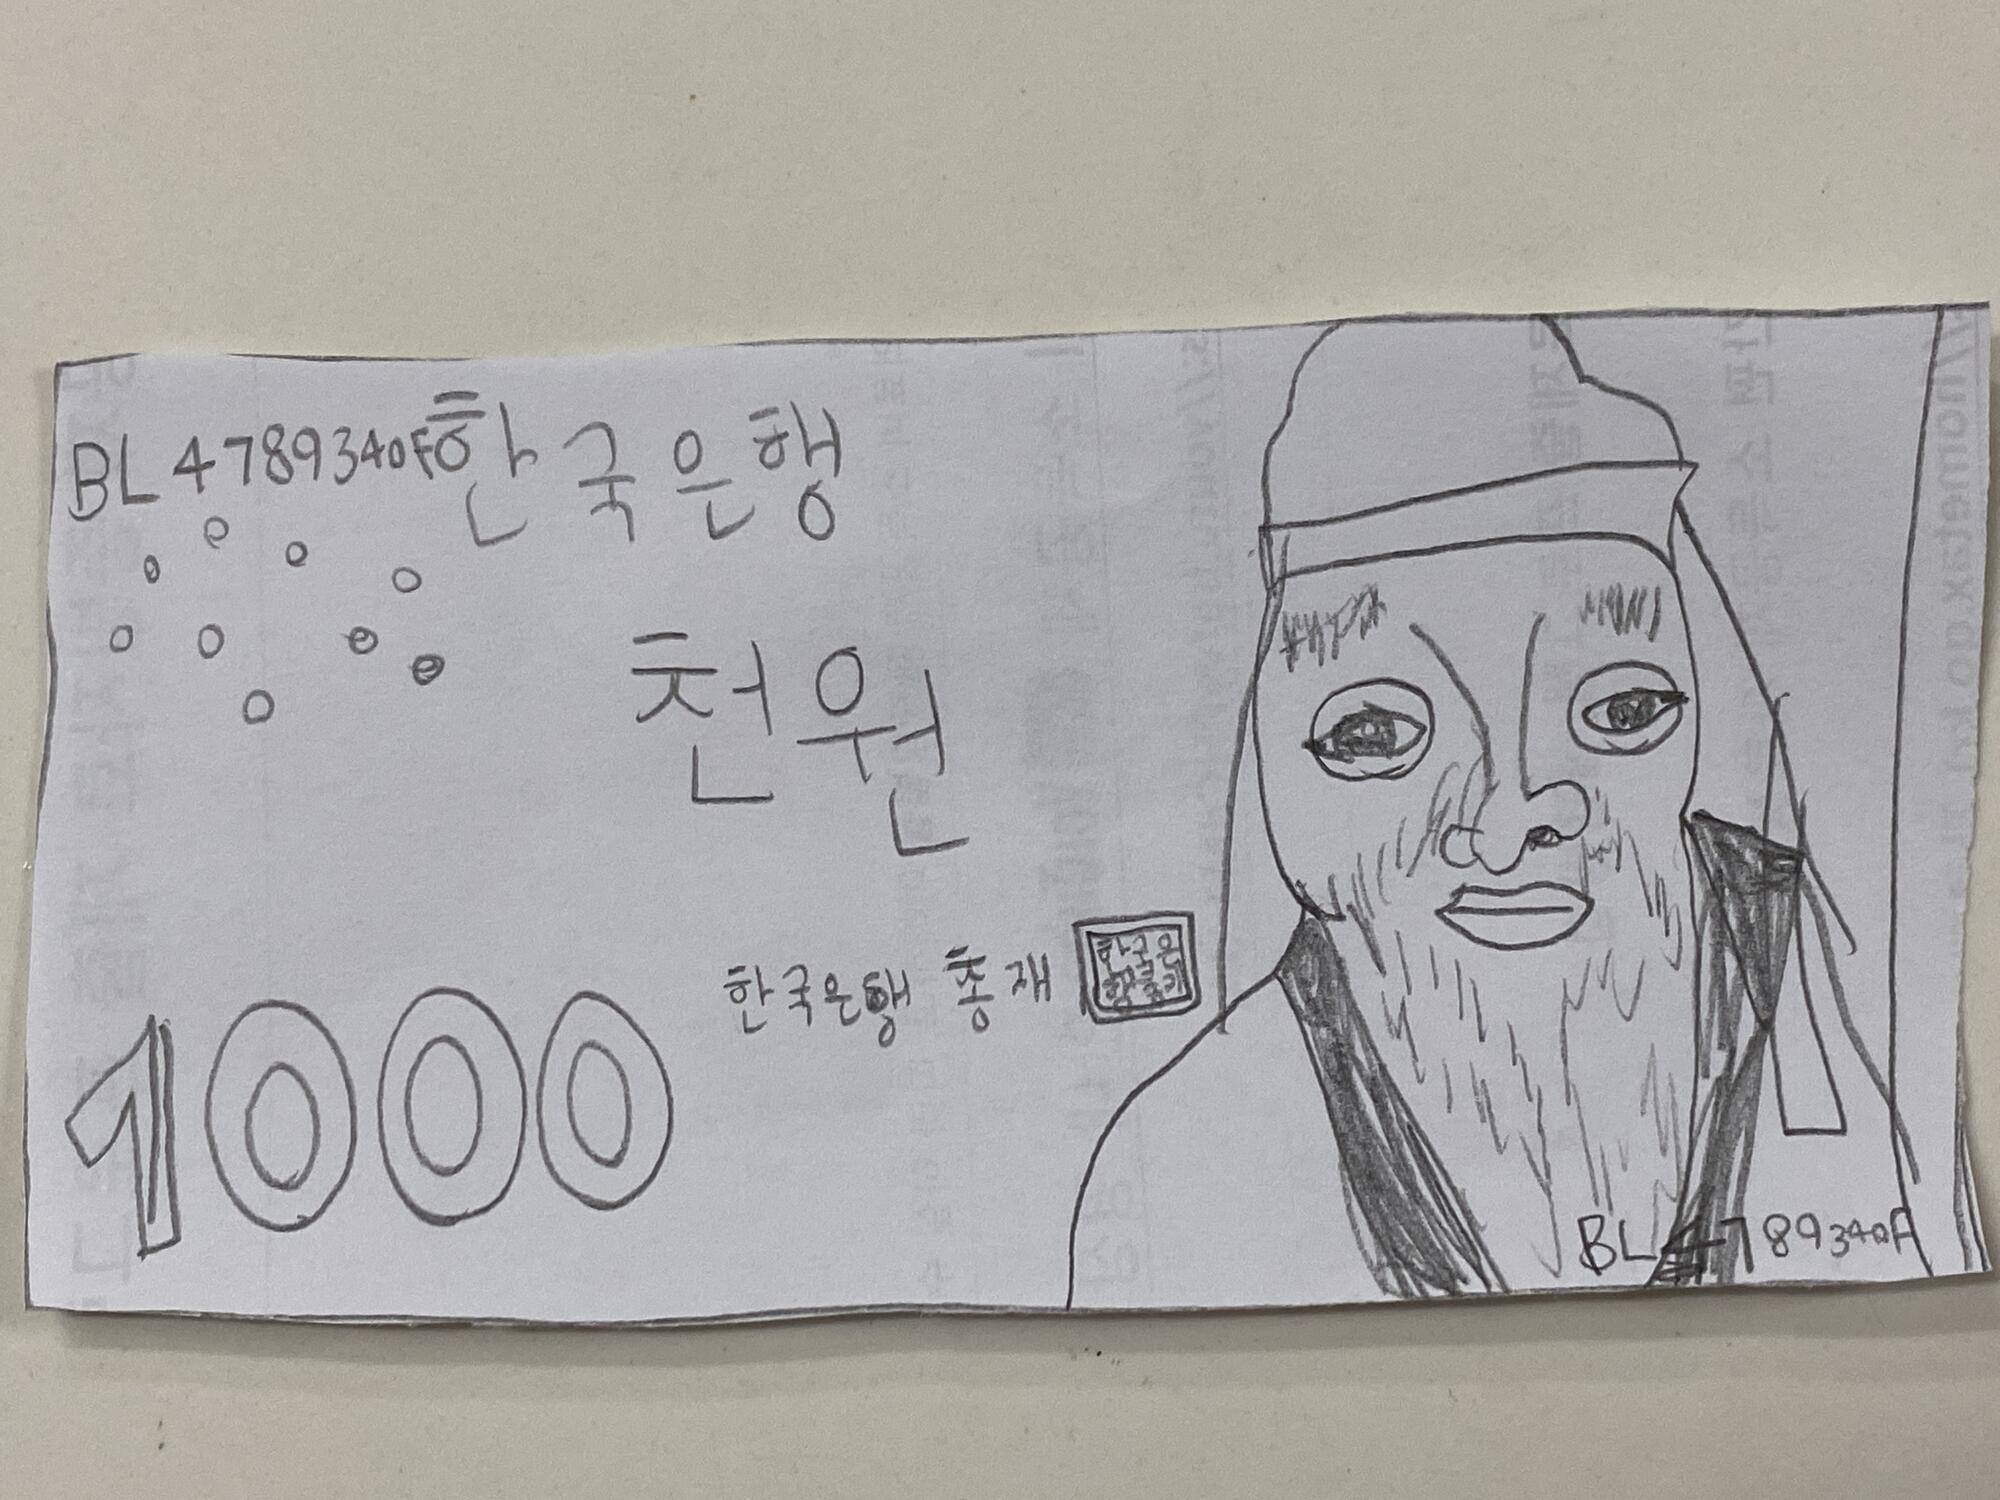 BL4789340F 한국은행
천원
한국은행 총재
1000
BL4789340F